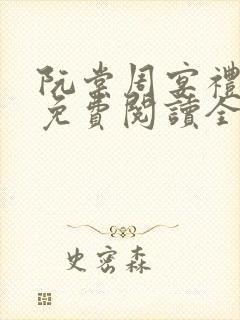 阮棠周宴禮
免費閱讀全
史密森